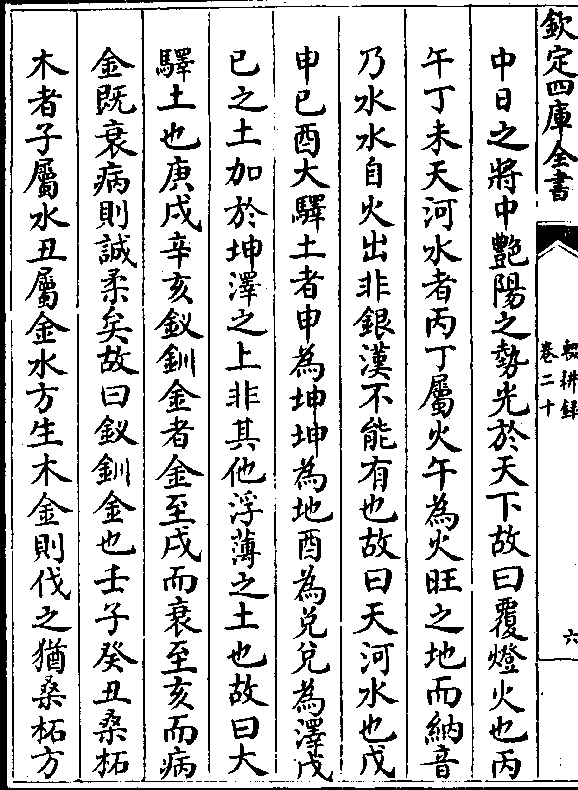 欽定四庫全書
輟耕録
卷二十
六
中日之將中艷陽之勢光於天下故曰覆燈火也丙
午丁未天河水者丙丁屬火午為火旺之地而納音
乃水水自火出非銀漢不能有也故曰天河水也戊
申已酉大驛土者申為坤坤為地酉為兌兌為澤戊
已之土加於坤澤之上非其他浮薄之土也故曰大
驛土也庚戌辛亥釵釧金者金至戌而衰至亥而病
金既衰病則誠柔矣故曰釵釧金也壬子癸丑桑柘
木者子屬水丑屬金水方生木金則伐之猶桑柘方